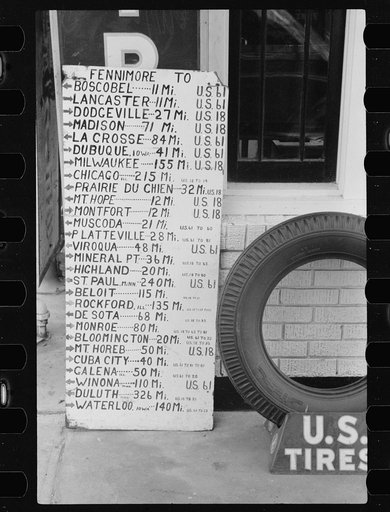 P
FENNIMORE TO
BOSCOBEL 11 Mi. U.S. 61
LANCASTER 11 Mi. U.S. 61
DODGEVILLE 27 Mi. U.S. 18
MADISON 71 Mi. U.S. 18
LA CROSSE 84 Mi. U.S. 61
DUBUQUE, IOWA 41 Mi. U.S. 61
MILWAUKEE 155 Mi. U.S. 18
CHICAGO 215 Mi.
PRAIRIE DU CHIEN 32 Mi. U.S. 18
MT HOPE 12 Mi. U.S. 18
MONTFORT 12 Mi. U.S. 18
MUSCODA 21 Mi. U.S. 61 TO 60
PLATTEVILLE 28 Mi.
VIROQUA 48 Mi. U.S. 61
MINERAL PT 36 Mi.
HIGHLAND 20 Mi.
ST PAUL, MINN 240 Mi. U.S. 61
BELOIT 115 Mi.
ROCKFORD, ILL 135 Mi.
DE SOTA 68 Mi.
MONROE 80 Mi.
BLOOMINGTON 20 Mi.
MT HOREB 50 Mi. U.S. 18
CUBA CITY 40 Mi.
GALENA 50 Mi.
WINONA 110 Mi. U.S. 61
DULUTH 326 Mi.
WATERLOO, IOWA 140 Mi.
U.S.
TIRES